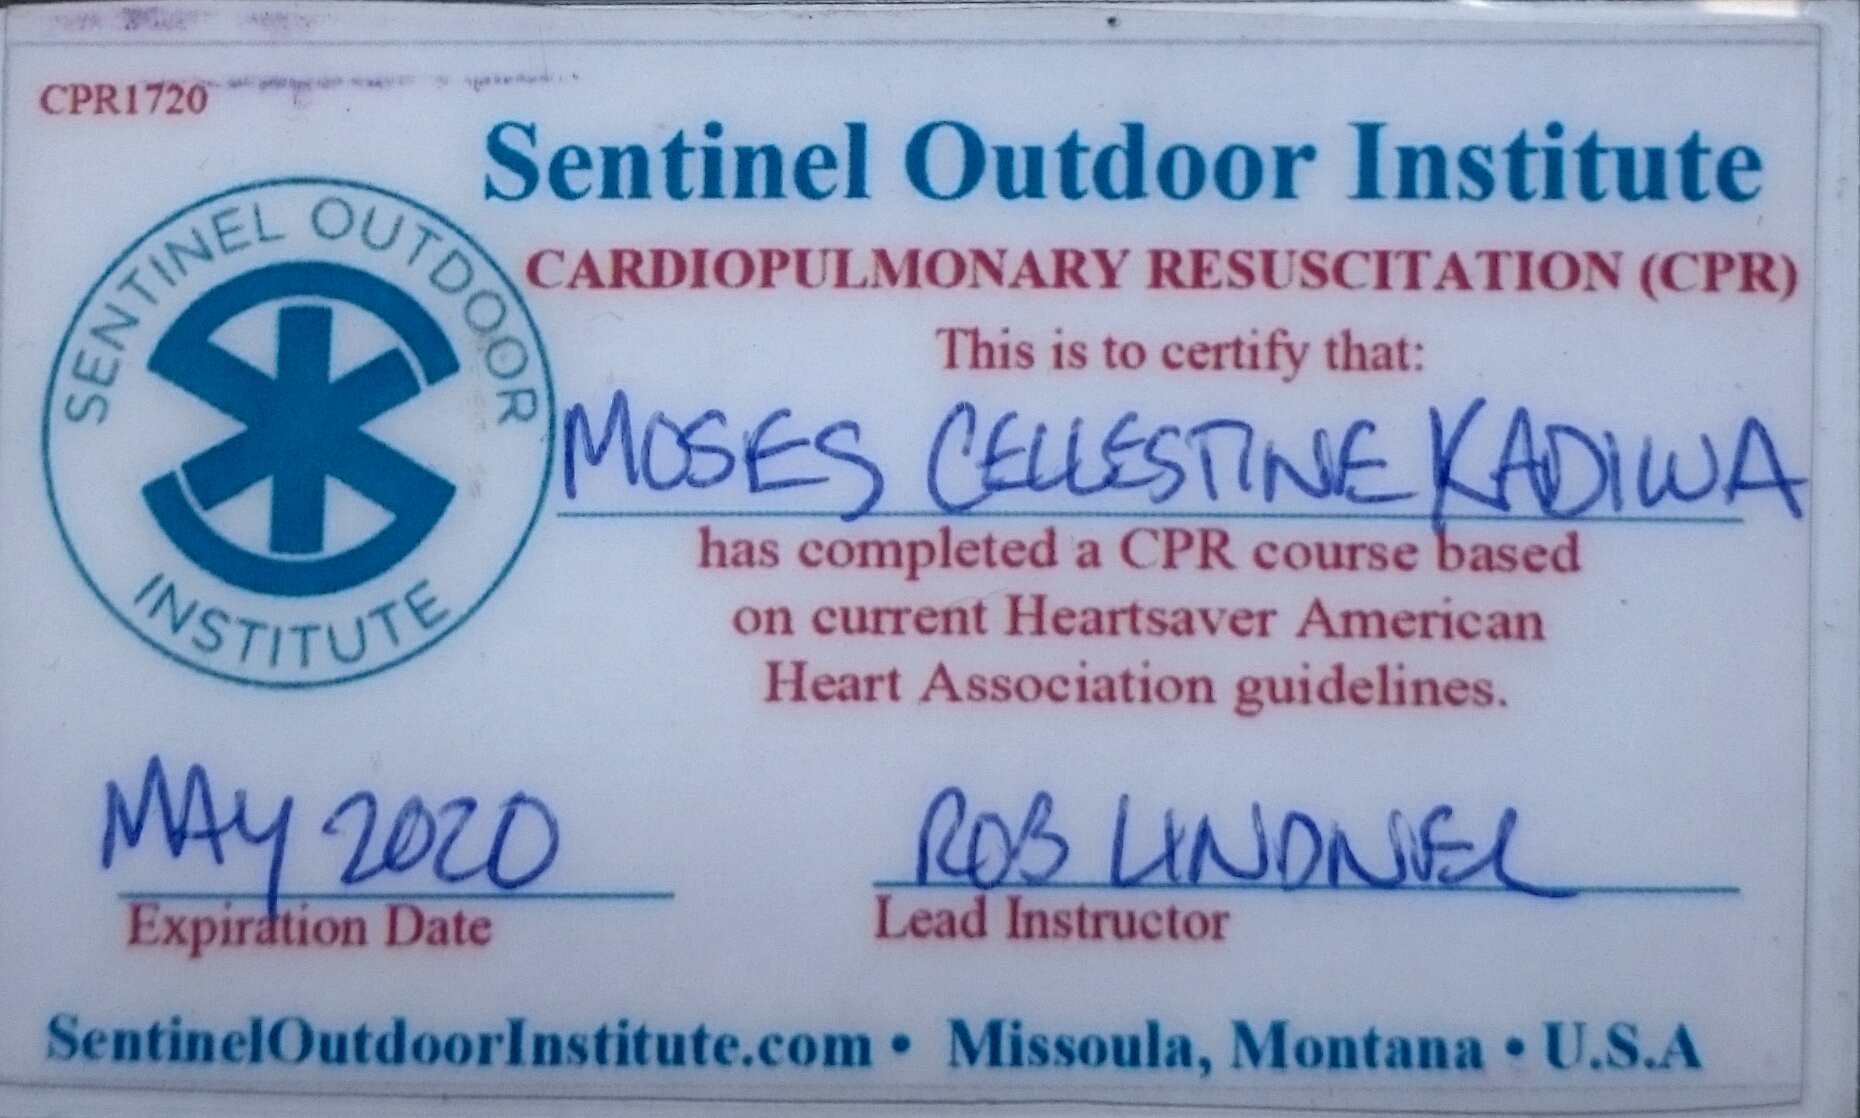 CPR1720
Sentinel Outdoor Institute
SENTINEL OUTDOOR
INSTITUTE
CARDIOPULMONARY RESUSCITATION (CPR)
This is to certify that:
MOSES CELLESTINE KADIWA
has completed a CPR course based
on current Heartsaver American
Heart Association guidelines.
MAY 2020
ROB LINDNER
Expiration Date
Lead Instructor
SentinelOutdoorInstitute.com • Missoula, Montana • U.S.A